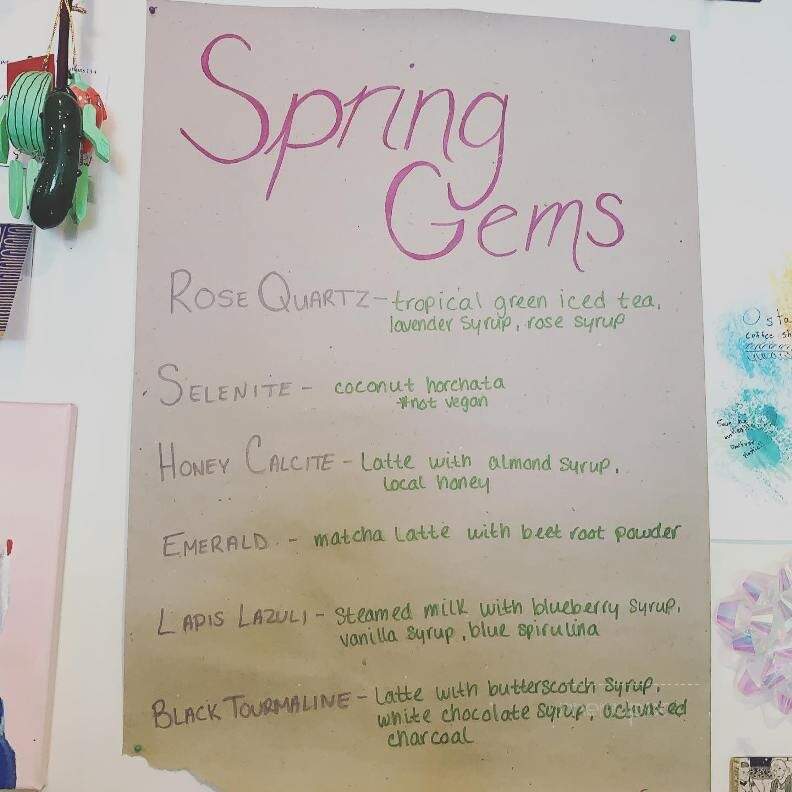 Spring
Gems
ROSE QUARTZ - tropical green iced tea,
lavender syrup, rose syrup
SELENITE - coconut horchata
*not vegan
HONEY CALCITE - Latte with almond syrup,
local honey
EMERALD - matcha Latte with beet root powder
LAPIS LAZULI - Steamed milk with blueberry syrup,
vanilla syrup, blue spirulina
BLACK TOURMALINE - Latte with butterscotch syrup,
white chocolate syrup, activated
charcoal